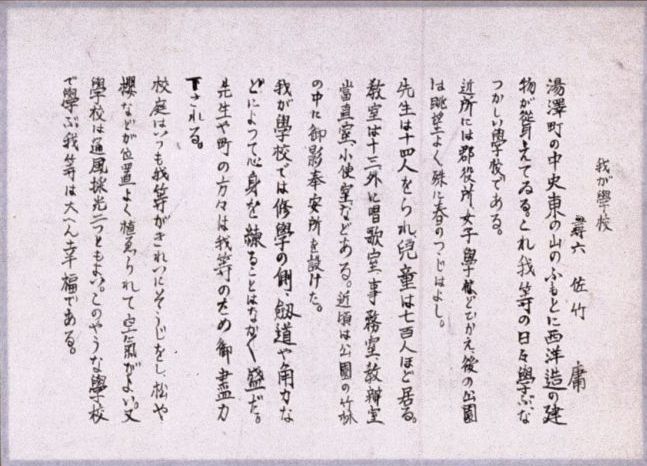 我が學校
尋六 佐竹 庸
湯澤町の中央東の山のふもとに西洋造の建
物が聳えてゐる。これ我等の日々學ぶな
つかしい學校である。
近所には郡役所、女子學校などひかえ後の公園
は眺望よく殊に春のつゝじはよし。
先生は十四人をられ兒童は七百人ほど居る。
教室は十三外に唱歌室、事務室、教辨室
當直室、小使室などある。近頃は公園の竹林
の中に御影奉安所を設けた。
我が學校では修學の側、劔道や角力な
どによつて心身を練ることはなか〳〵盛だ。
先生や町の方々は我等のため御盡力
下される。
校庭はいつも我等がきれいにそうじをし、松や
櫻などが位置よく植ゑられて空氣がよい。又
學校は通風採光二つともよい。このやうな學校
で學ぶ我等は大へん幸福である。